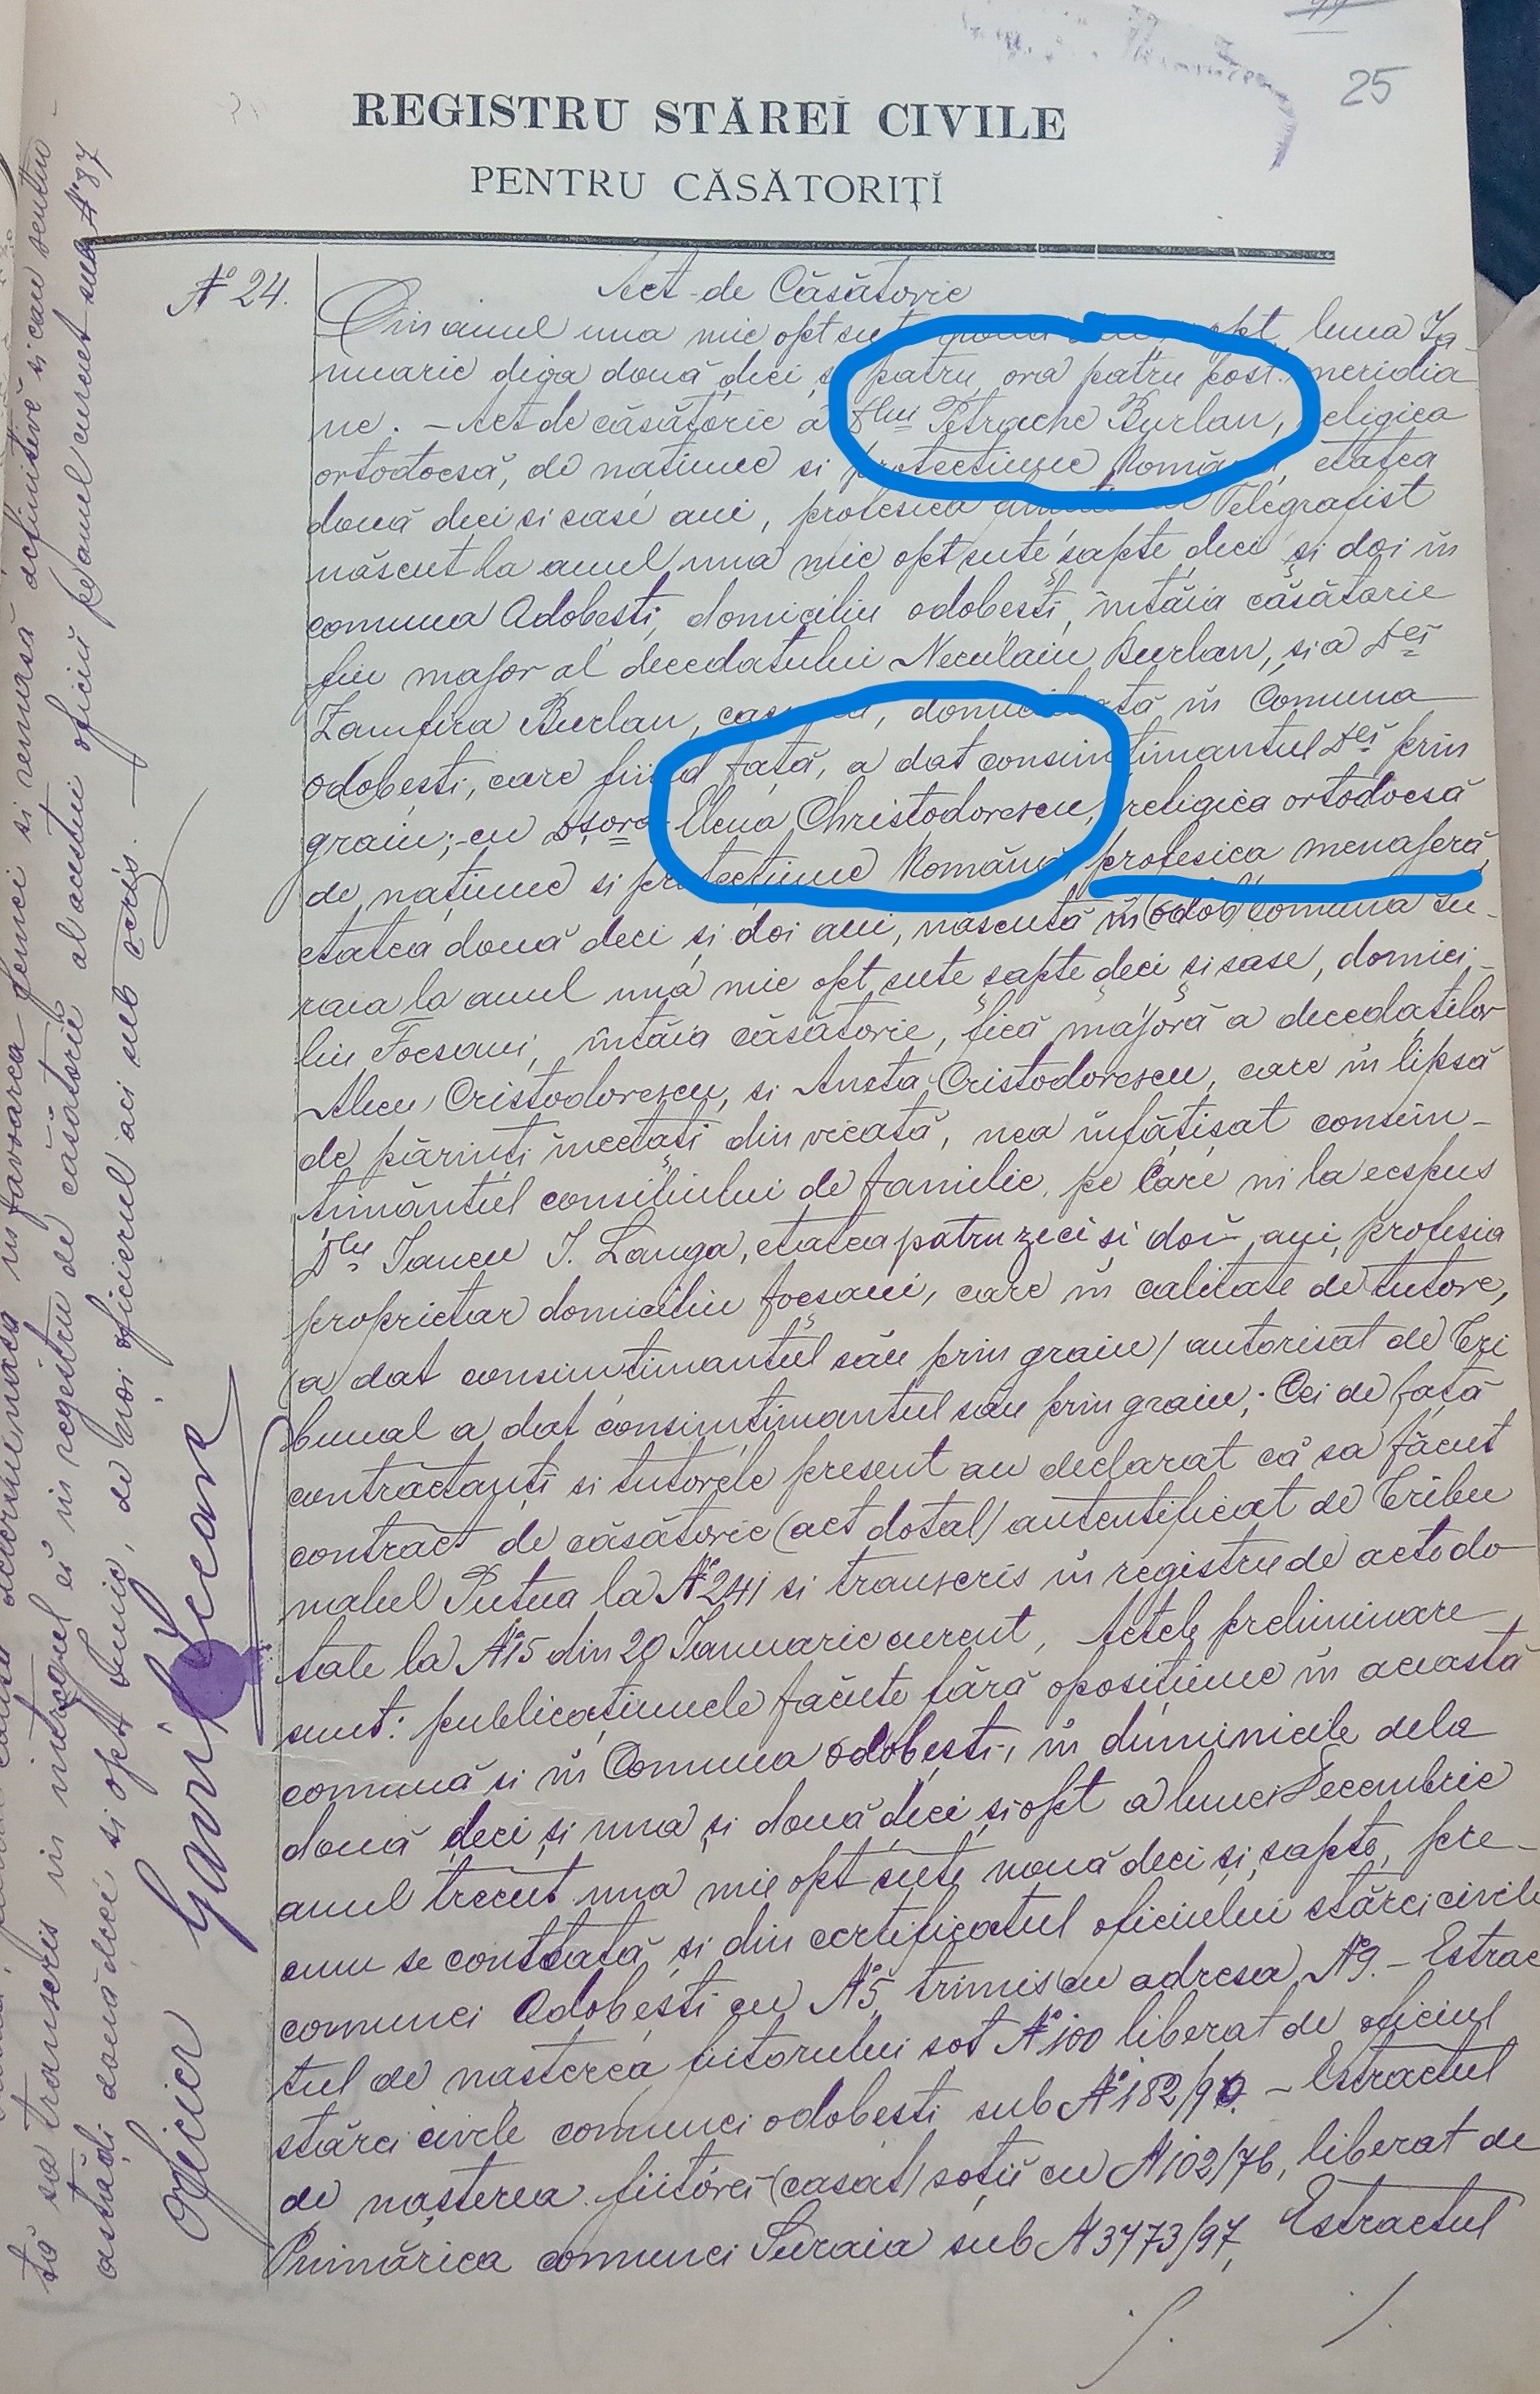 25
REGISTRU STĂREĬ CIVILE
PENTRU CĂSĂTORIȚĬ
№ 24.
Act de Căsătorie
Din anul una mie opt sute opt, luna Ia-
nuarie dioa două deci și patru, ora patru post meridia
ne. – Act de căsătorie a Dlui Petrache Burlan, religiea
ortodocsă, de națiune si protecțiune Română, etatea
două deci si sase ani, profesiea Telegrafist
născut la anul una mie opt sute șapte deci și doi în
comuna Odobești, domiciliu odobești, întăia căsătorie
fiu major al decedatului Neculaiu Burlan, și a Dei
Zamfira Burlan, casnica, domiciliată în Comuna
Odobești, care fiind față, a dat consimtimantul Dei prin
graiu; cu Dșora Elena Christodorescu, religiea ortodocsă
de națiune si protecțiune Română, profesiea menajeră,
etatea două deci și doi ani, născută în (odob) comuna Su-
raia la anul una mie opt sute șapte deci și sase, domici-
liu Focsani, întăia căsătorie, fiică majoră a decedaților
Alecu Cristodorescu, si Aneta Cristodorescu, care în lipsă
de părinți încetați din vieată, nea înfățișat consim-
timăntul consiliului de familie, pe care ni la ecspus
Dlu Iancu I. Langa, etatea patru zeci și doi ani, profesia
proprietar domiciliu focșani, care în calitate de tutore,
(a dat consimtimantul său prin graiu) autorisat de Tri
bunal a dat consimtimantul său prin graiu; Cei de față
contractanți si tutorele present au declarat că sa făcut
contract de căsătorie (act dotal) autentificat de Tribu
nalul Putna la № 241 si transcris în registru de acte do
tale la № 15 din 20 Ianuarie curent, Actele preliminare
sunt: publicațiunele făcute fără oposițiune în această
comună si în Comuna odobești, în duminicile dela
două deci și una și două deci și opt a lunei Decembrie
anul trecut una mie opt sute nouă deci și șapte, pre-
cum se constată și din certificatul oficiului stărei civile
comunei Odobești cu № 5, trimis cu adresa № 9. – Estrac
tul de nasterea fiitorului sot № 100 liberat de oficiul
stărei civile comunei odobesti sub № 182/90. – Estractul
de nașterea fiitórei (casat) soții cu № 102/76, liberat de
Primăriea comunei Suraia sub № 3473/97, Estractul
sa transcris in intregul ei in registru de căsătorii al acestui oficiu pe anul curent sub № 87
astădi două deci si opt Iunie, de noi oficierul aci sub scris.
Oficier